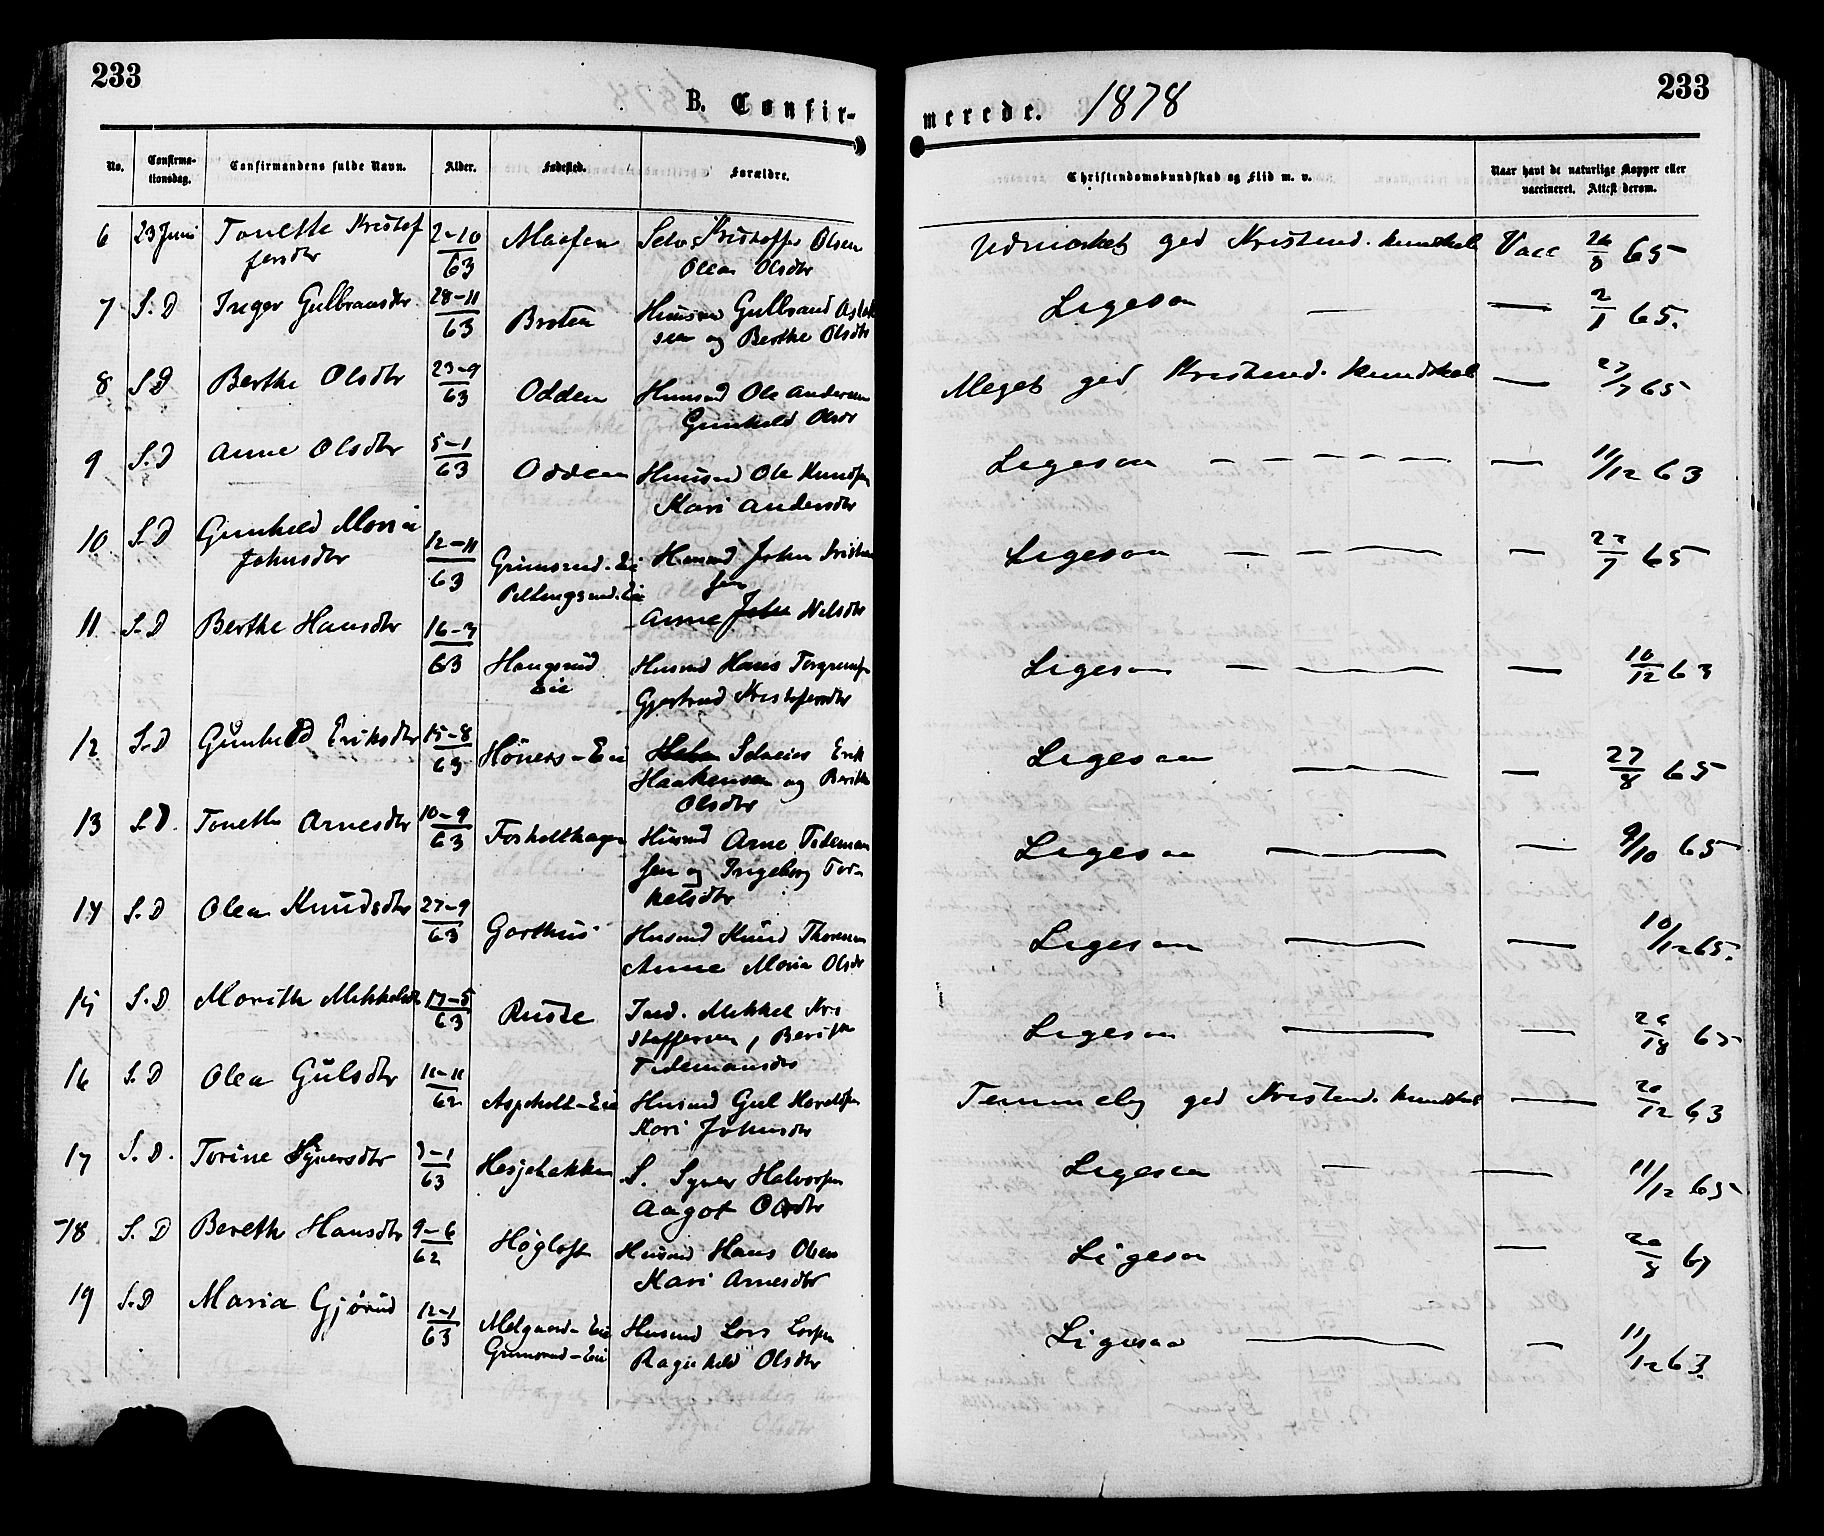 233
B. Confir-
merede. 1878
233
No. Confirmationsdag. Confirmandens fulde Navn. Alder. Fødested. Forældre. Christendomskundskab og Flid m. v. Naar havt de naturlige Kopper eller vaccineret. Attest derom.
6 23 Juni Tonette Kristof 2-10 Selv. Kristoffer Olsen Udmærket god Kristend. kundskab Vacc 26/8 65
fersdtr 63 Olea Olsdtr
7 S.D Inger Gulbransdtr 28-11 Braten Husmd Gulbrand Aslak Ligesaa — — 2/1 65.
63 sen og Berthe Olsdtr
8 S.D Berthe Olsdtr 23-9 Odden Husmd Ole Andersen Meget god Kristend. kundskab — 27/7 65
63 Gunhild Olsdr
9 S.D Anne Olsdtr 5-1 Odden Husmd Ole Knudsen Ligesaa — — 11/12 63
63 Kari Andersdtr
10. S.D Gunhild Maria 12-11 Grimsrud-Eie Husmd John Kristian Ligesaa — — 27/7 65
Johnsdtr 63 sen
Anne Nilsdtr
11. S.D Berthe Hansdtr 16-3 Haugsrud Husmd Hans Torgrimsen Ligesaa — — 10/12 63
63 Eie Gjertrud Kristofersdtr
12 S.D Gunhild Eriksdtr 15-8 Høners-Eie Selveier Erik Ligesaa — — 27/8 65
63 Haakensen og Berith
Olsdtr
13 S.D. Tonette Arnesdtr 10-9 Forholthagen Husmd Arne Tideman Ligesaa — — 9/10 65
63 sen og Ingeborg Tor-
kelsdtr
14 S.D Olea Knudsdtr 27-9 Garthus Husmd Knud Thoresen Ligesaa — — 10/12 65.
63 Anne Maria Olsdr
15 S.D Marith Mikkelsdtr 17-5 Ruste Ind. Mikkel Kri Ligesaa — 65
63 stoffersen, Berith
Tidemansdtr
16 S.D Olea Gulsdtr 11-11 Aspholt-Eie Husmd Gul Haralsen Temmelig god Kristend. kundskab — 20/12 63
62 Kari Johnsdtr
17 S.D. Torine Syversdtr 3-1 Hesjebakken S. Syver Halvorsen Ligesaa — — 11/12 65
63 Aagot Olsdtr
18 S.D Bereth Hansdtr 9-6 Høgloft Husmd Hans Olsen Ligesaa — 20/8 67
62 Kari Arnesdtr
19 S.D Maria Gjørud 12-1 Melgaard-Eie Husmd Lars Larsen Ligesaa — — 11/12 63.
63 Grimsrud-Eie Ragnhild Olsdtr